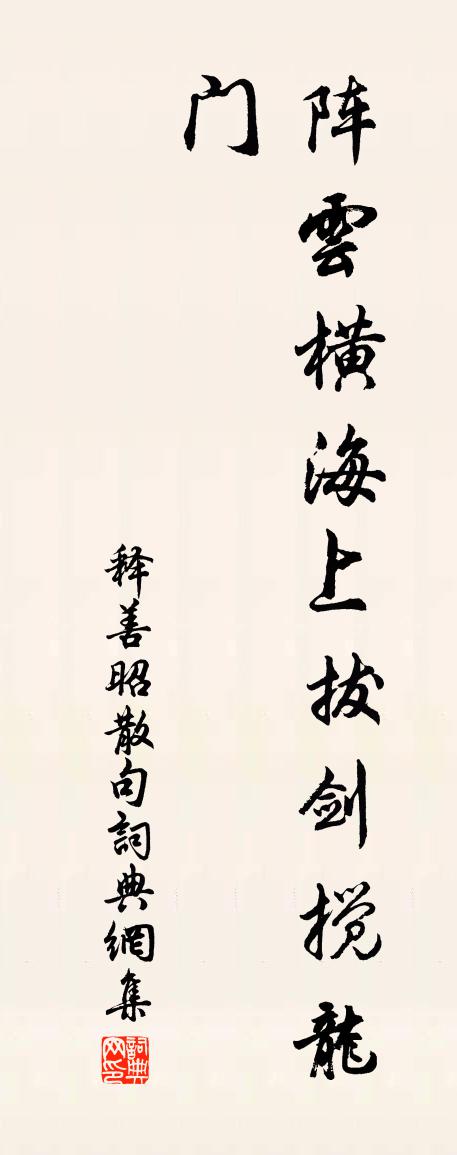 阵雲横海上拔剑搅龍
门
释善昭散句詞典網集
詞典网印